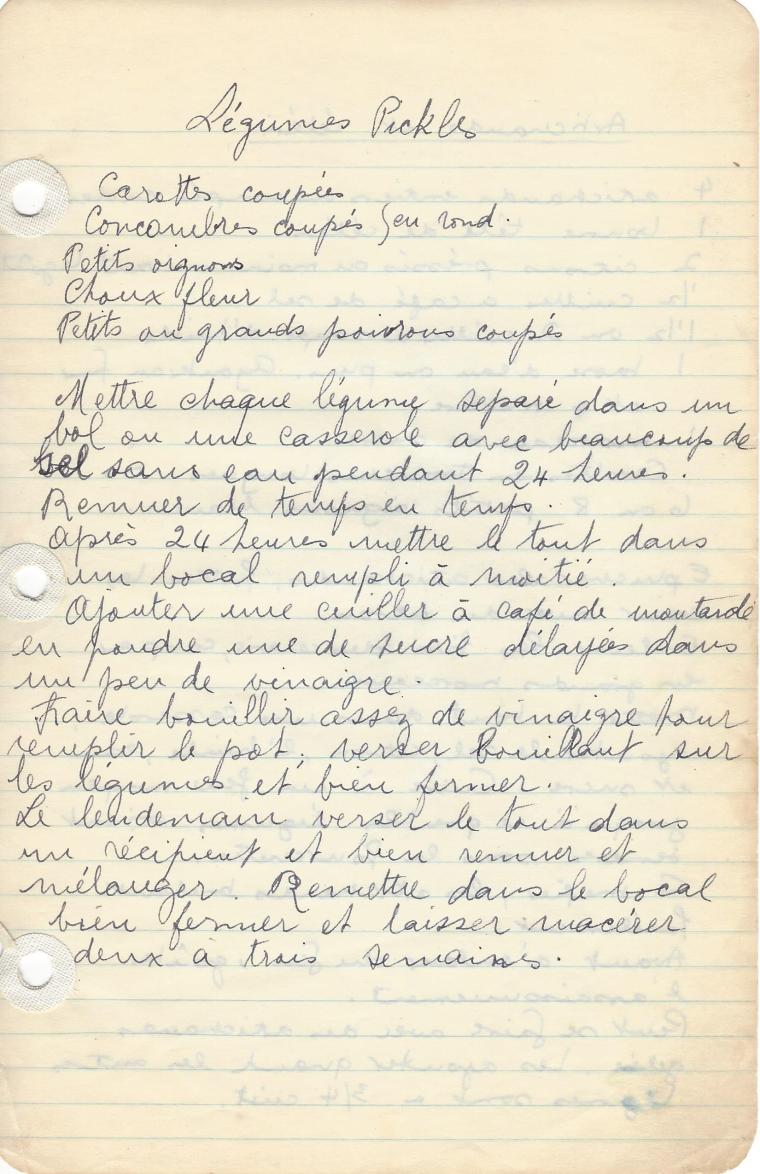 Légumes Pickles
Carottes coupées
Concombres coupés } en rond.
Petits oignons
Choux fleur
Petits ou grands poivrons coupés
Mettre chaque légume separé dans un
bol ou une casserole avec beaucoup de
sel sans eau pendant 24 heures.
Remuer de temps en temps.
Après 24 heures mettre le tout dans
un bocal rempli à moitié.
Ajouter une cuiller à café de moutarde
en poudre une de sucre délayées dans
un peu de vinaigre.
Faire bouillir assez de vinaigre pour
remplir le pot; verser bouillant sur
les légumes et bien fermer.
Le lendemain verser le tout dans
un récipient et bien remuer et
mélanger. Remettre dans le bocal
bien fermer et laisser macérer
deux à trois semaines.